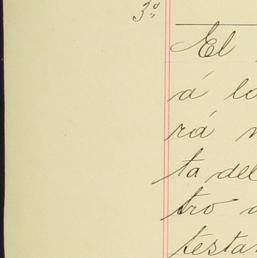 3º
El
á lo
rá
ta del
tro
testa